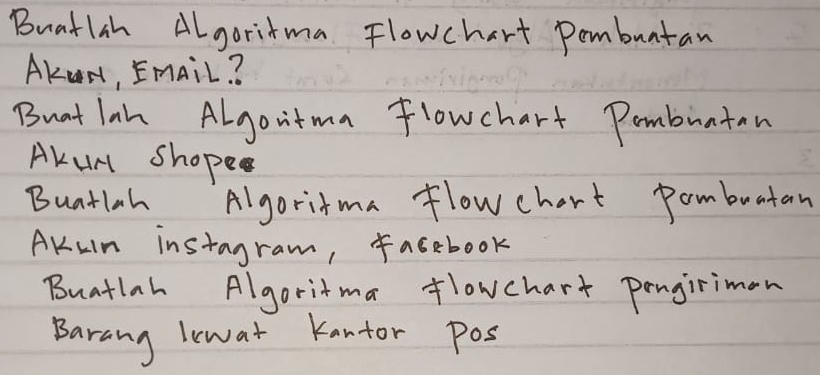 Buatlah ALgoritma Flowchart Pembuatan
AKUN, EMAiL?
Buat lah ALgoritma Flowchart Pembuatan
AKUN Shopee
Buatlah Algoritma Flow chart pembuatan
AKUn instagram, Facebook
Buatlah Algoritma flowchart pengiriman
Barang lewat kantor pos